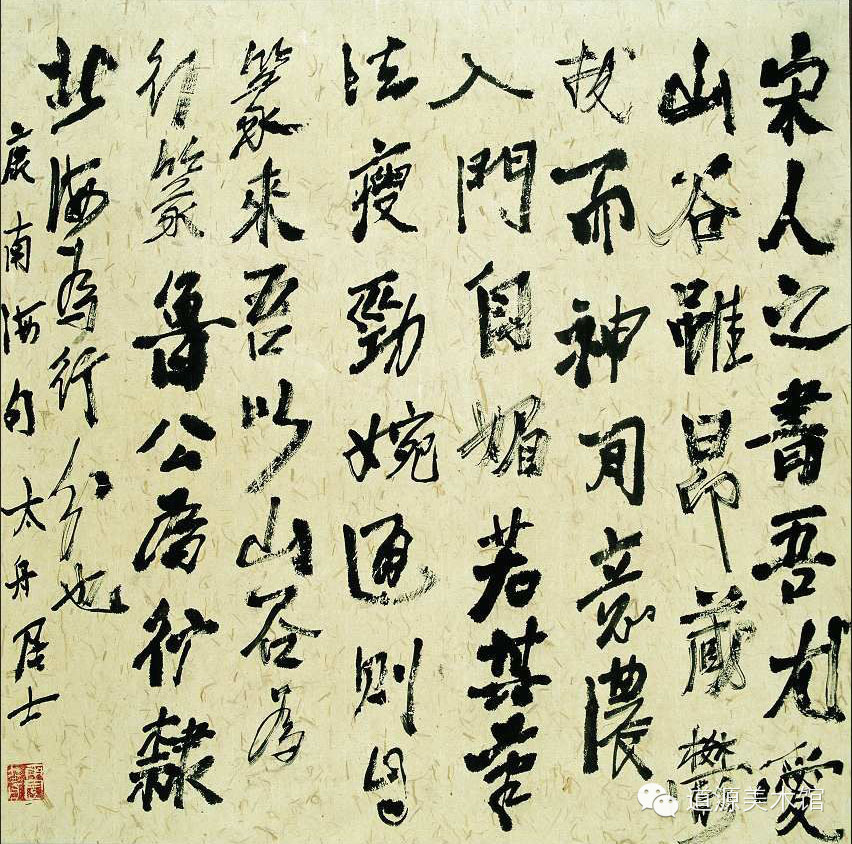 宋人之書吾尤愛
山谷雖昂藏鬱
拔而神閒意濃
入門自媚若其筆
法瘦勁婉通則自
篆來吾以山谷為
行篆魯公為行隸
北海為行分也
康南海句 太舟居士
道源美术馆